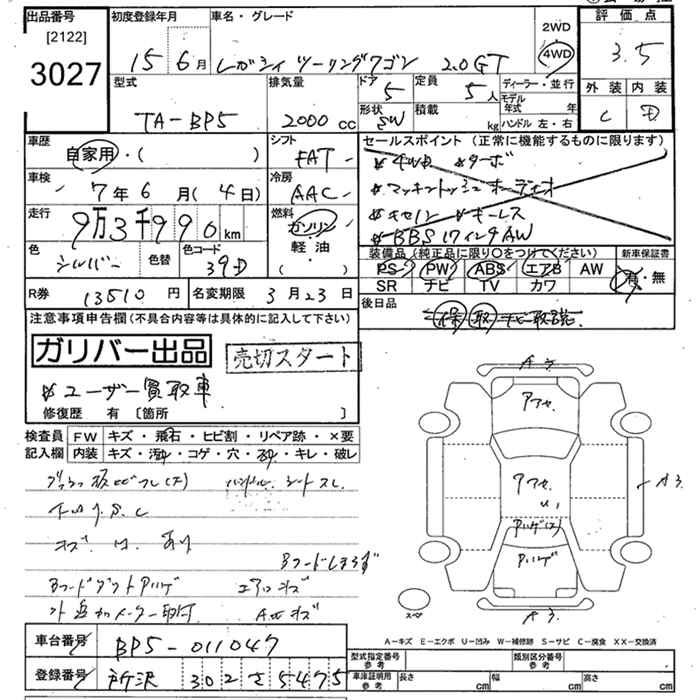 出品番号
[2122]
3027
初度登録年月
15年6月
車名・グレード
レガシィ ツーリングワゴン 2.0GT
2WD
4WD
評価点
3.5
外装 内装
C D
型式
TA-BP5
排気量
2000cc
ドア
5
形状
SW
定員
5人
積載
kg
ディーラー・並行
モデル年式 年
ハンドル 左・右
車歴
自家用・( )
シフト
FAT
車検
7年6月(4日)
冷房
AAC
走行
9万3千990km
燃料
ガソリン
軽・油
( )
色
シルバー
色替
色コード
39D
R券 13510円
名変期限 3月23日
セールスポイント(正常に機能するものに限ります)
4WD ターボ
マッキントッシュオーディオ
キセノン キーレス
BBS17インチAW
装備品(純正品に限り○をつけてください)
PS PW ABS エアB AW
SR ナビ TV カワ
新車保証書
有・無
後日品
保 取 ナビ取説
注意事項申告欄(不具合内容等は具体的に記入して下さい)
ガリバー出品
売切スタート
ユーザー買取車
修復歴 有 〔箇所 〕
検査員記入欄
FW キズ・飛石・ヒビ割・リペア跡・×要
内装 キズ・汚れ・コゲ・穴・切・キレ・破レ
ハンドル、シートスレ
キズ、U、あり
BフードダクトハゲP
エアロキズ
外 追加メーター取付
AWキズ
A3
アフセ
アフセ
U1
A3
スペ
A3
A-キズ E-エクボ U-凹み W-補修跡 S-サビ C-腐食 XX-交換済
車台番号 BP5-011047
登録番号 所沢 302 さ 5475
型式指定番号 参考
類別区分番号 参考
車庫証明用 参考
長さ cm 幅 cm 高さ cm